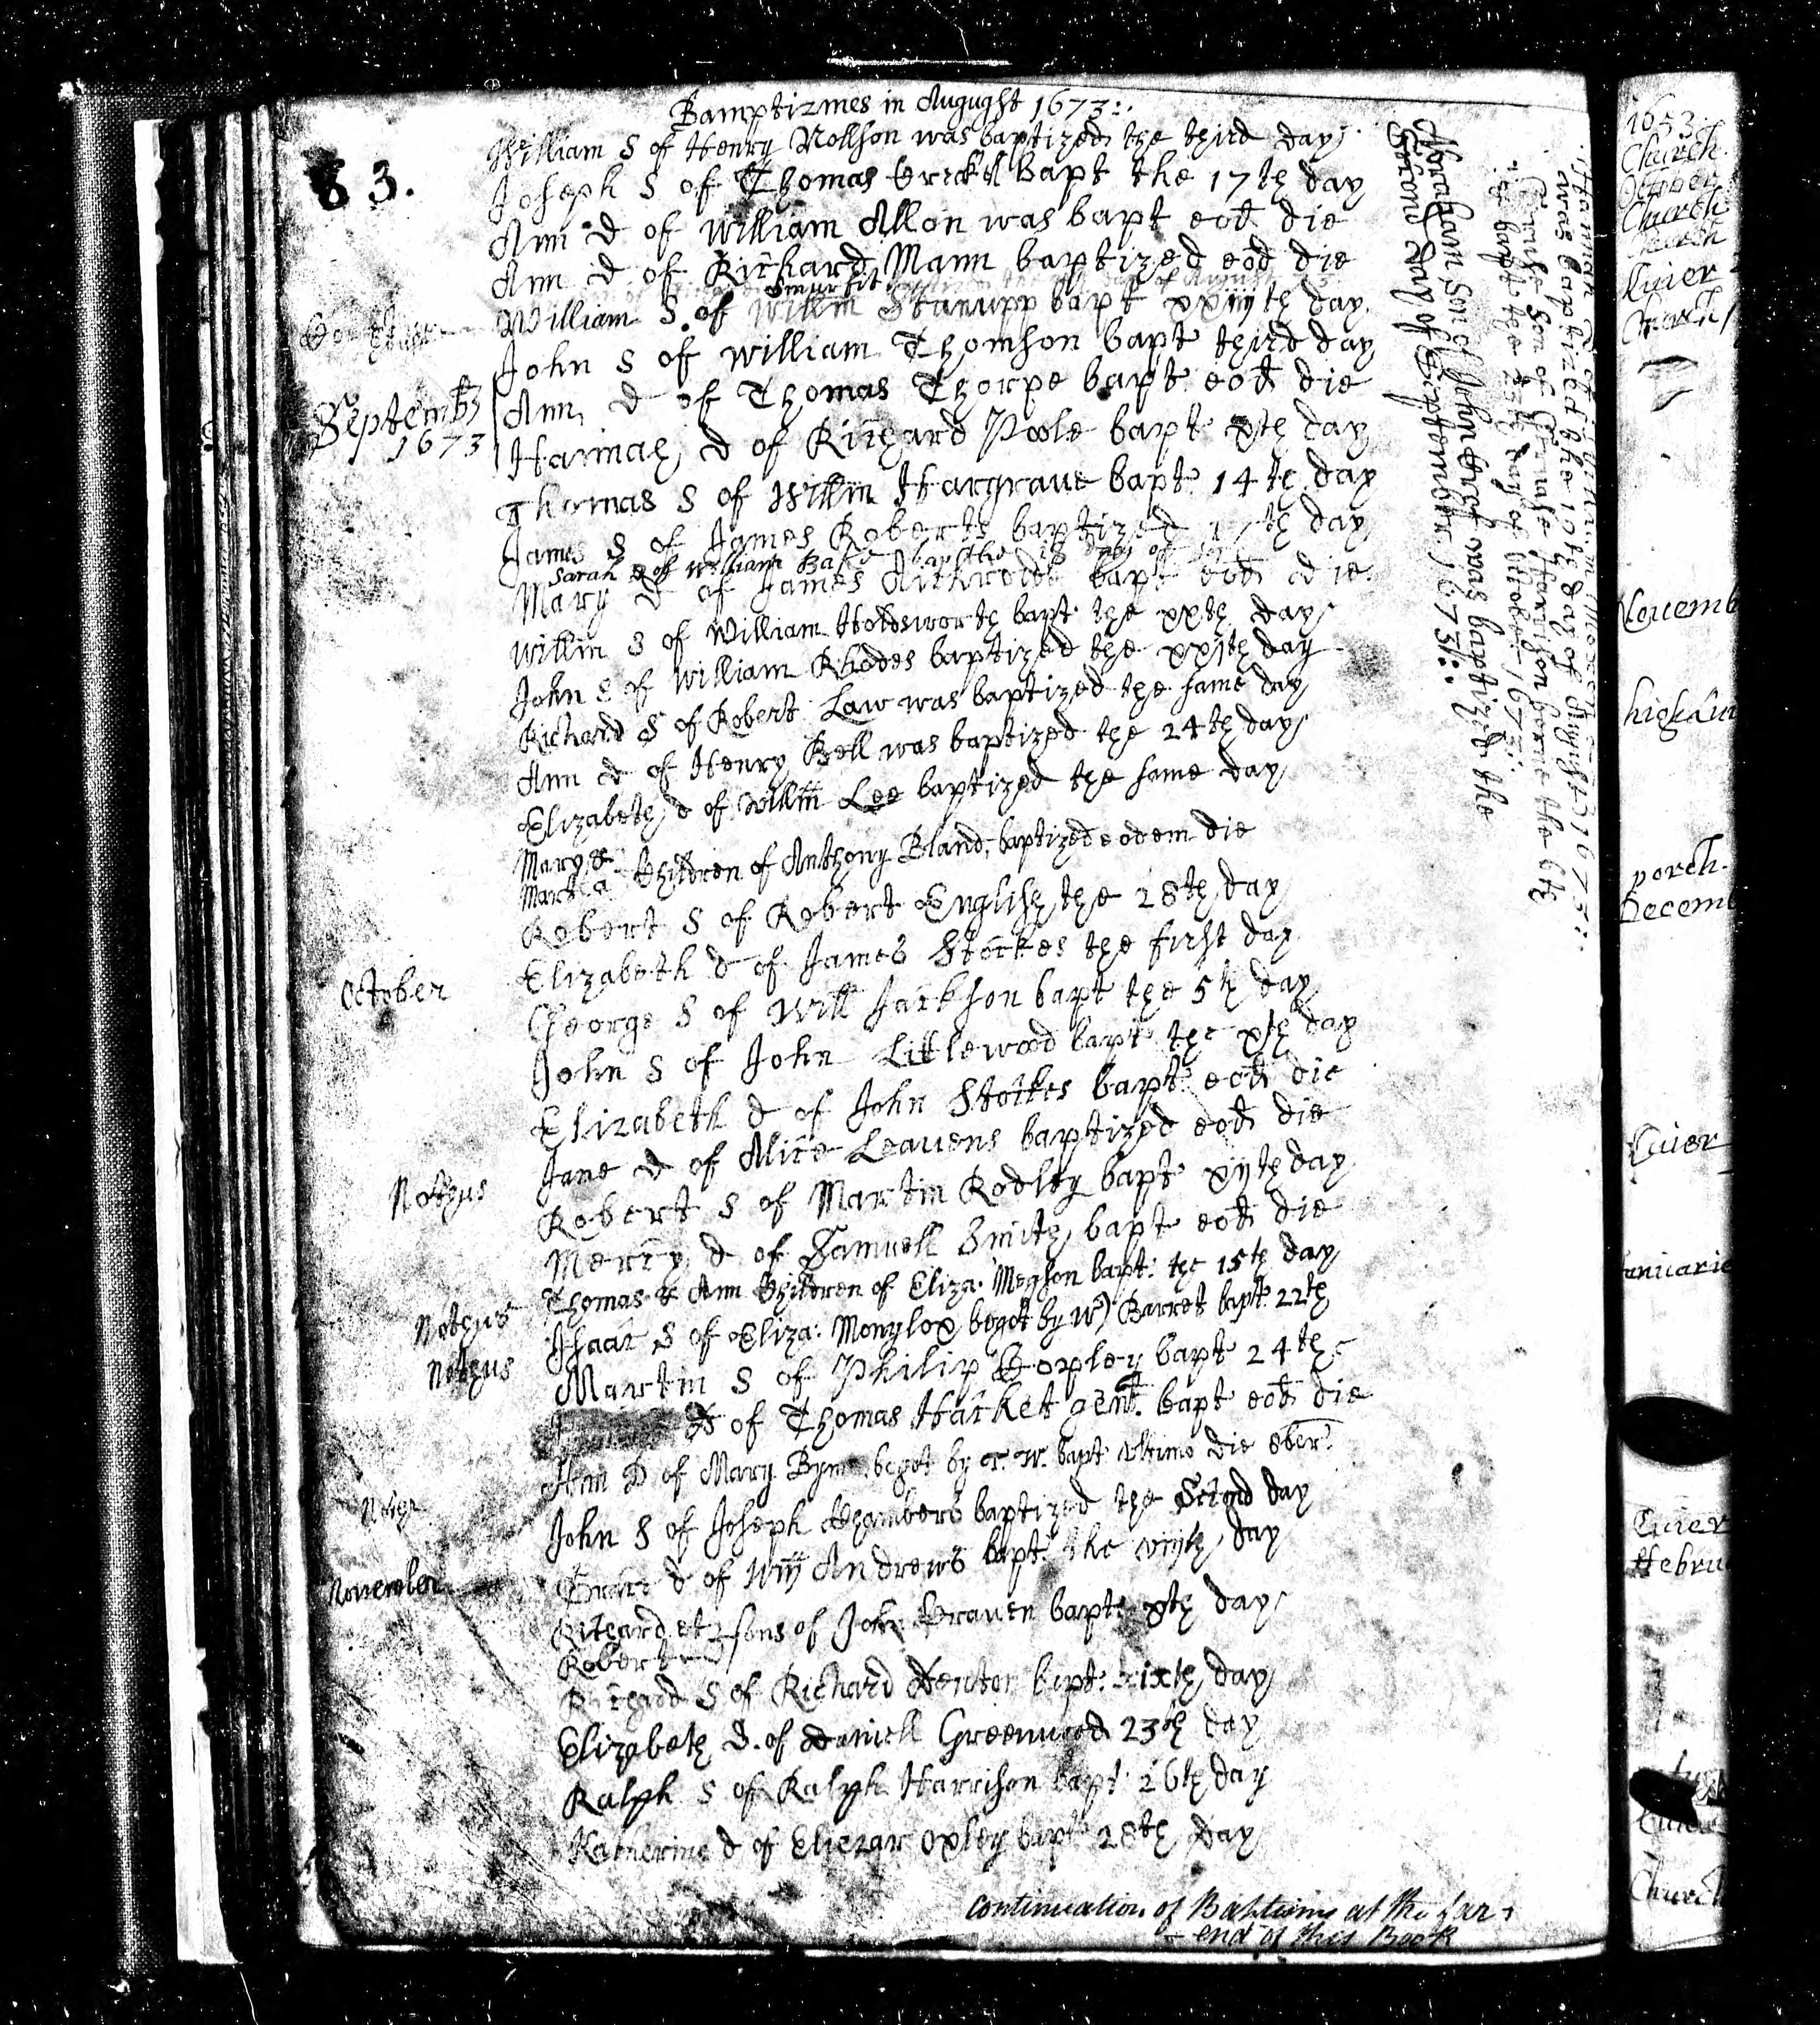 Bamptizmes in Augught 1673:.
83.
William S of Henry Nollson was baptized the third day
Joseph S of Thomas bapt the 17th day
Ann d of William Allon was bapt eod die
Ann d of Richard Mann baptized eod die
William S of Willm Stanupp bapt day
John S of william Thomson bapt third day
Septemb 1673
Ann d of Thomas Thorpe bapt eod die
Hannah d of Richard Poole bapt xth day
Thomas S of Willm Hargraue bapt 14th day
James S of James Roberts baptized day
Sarah d of William bapt the day of
Mary d of James bapt eod die
Willm S of William Holdsworth bapt the xxth day
John S of William Rhodes baptized the xxjth day
Richard S of Robert Law was baptized the same day
Ann d of Henry Bell was baptized the 24th day
Elizabeth d of Willm Lee baptized the same day
Mary &
Martha Children of Anthony Bland, baptized eodem die
Robert S of Robert English the 28th day
October
Elizabeth d of James Stockes the first day
George S of Will Jackson bapt the 5th day
John S of John Littlewood bapt the xth day
Elizabeth d of John Stockes bapt eod die
Jane d of Alice Leauens baptized eod die
Nothus
Robert S of Martin Rodley bapt xijth day
Mercy d of Samuell Smith bapt eod die
Thomas & Ann Children of Eliza: Megson bapt: the 15th day
Nothus
Isaac S of Eliza: Monylox begot by Barret bapt 22th
Nothus
Martin S of Philip Copley bapt 24th
d of Thomas Hacket gent. bapt eod die
Ann D of Mary begot by bapt Vltimo die 8ber.
John S of Joseph Chambers baptized the Second day
November
Grace d of Andrews bapt the viijth day
Richard et
Robert sons of John Crauen bapt xth day
Richard S of Richard Denton bapt: xixth day
Elizabeth D. of Daniell Greenwood 23th day
Ralph S of Ralph Harrison bapt 26th day
Katherine d of Eliezar Oxley bapt 28th day
continuation of Baptisms at the far
end of this Book
Abraham Son of John was baptized the
Second day of September 1673:
Son of Harrison borne the 6th
bapt the day of October 1673:
Hannah
was baptized the 10th day of August 1673:
1653
Church
October
Church
Church
Quier
Church
Nouemb
high Qui
porch
Decemb
Quier
anuarie
Quier
Februa
Church